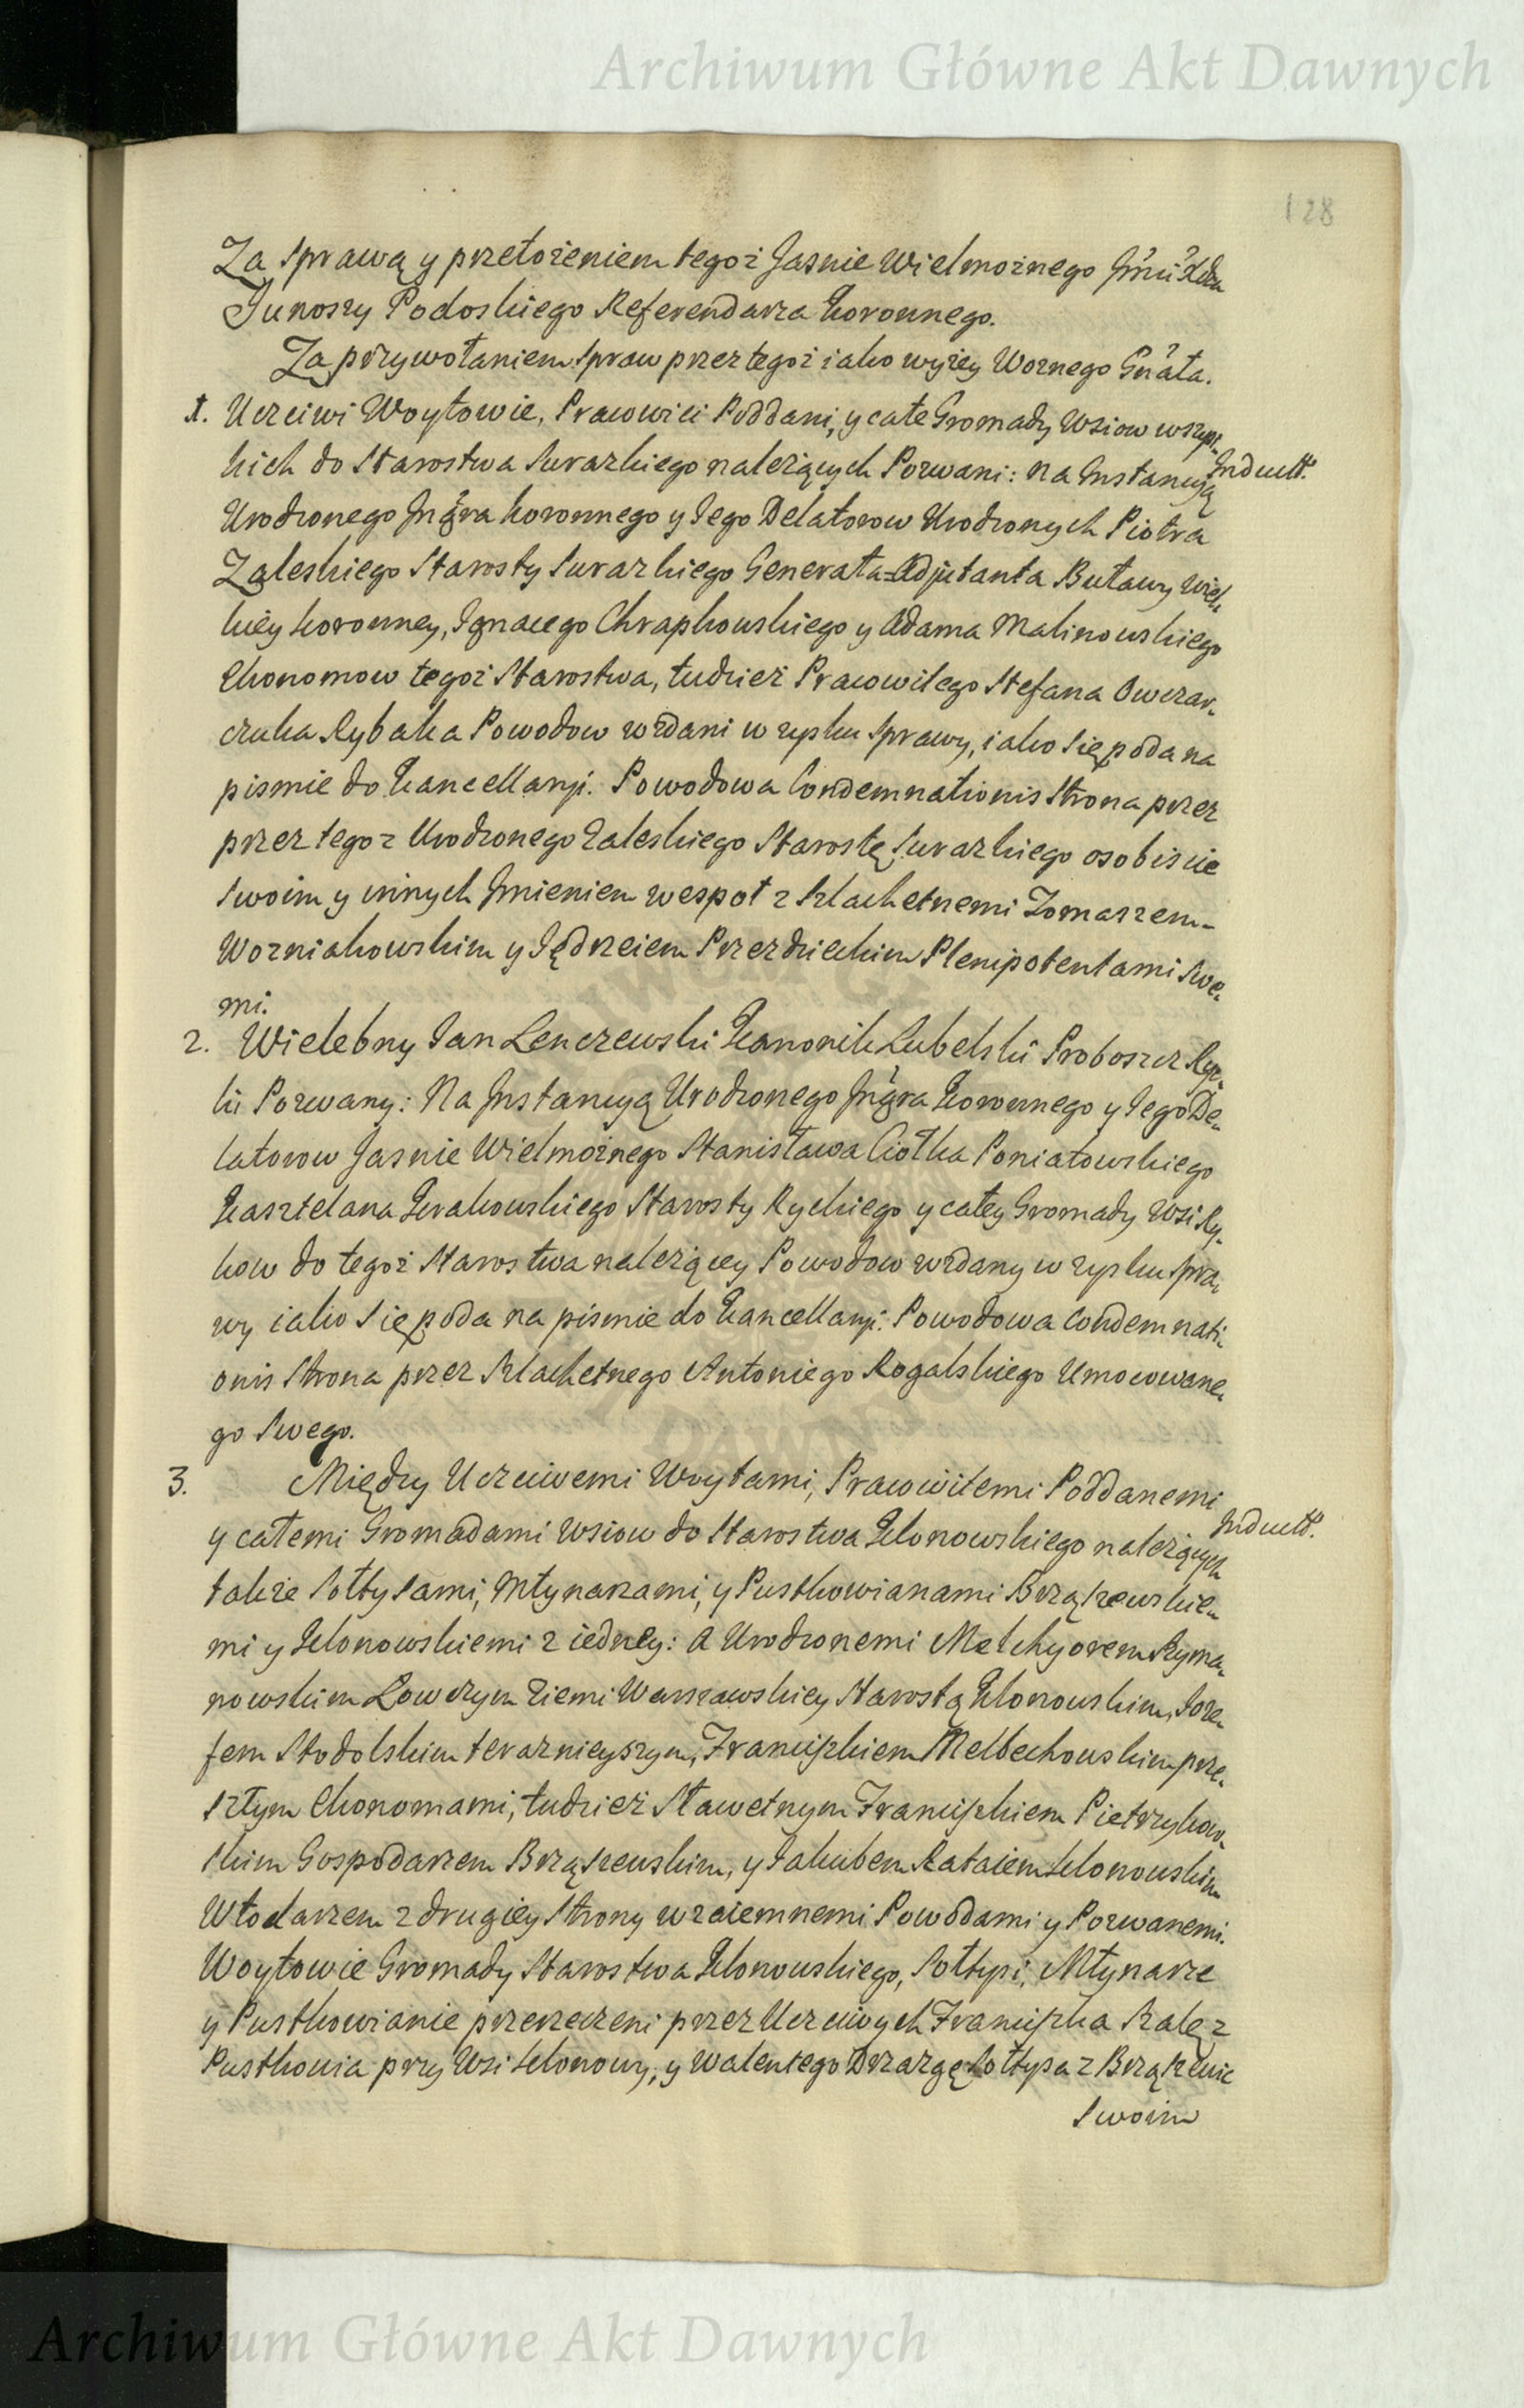 Archiwum Główne Akt Dawnych
128
Za Sprawą y przełożeniem tegoż Jasnie Wielmożnego
Junoszy Podoskiego Referendarza Koronnego.
Za przywołaniem Spraw przez tegoż iako wyżey Woznego Gnàła.
1. Uczciwi Woytowie, Pracowici Poddani, y całe Gromady Wsiow wszyst-
kich do Starostwa Surazkiego należących Pozwani: na Instancyą
Indukt.
Urodzonego Ingra Koronnego y Jego Delatorow Urodzonych Piotra
Zaleskiego Starosty Surazkiego Generała-Adjutanta Buławy Wiel-
kiey Koronney, Ignacego Chrapkowskiego y Adama Malinowskiego
Ekonomow tegoż Starostwa, tudzież Pracowitego Stefana Owczar-
czuka Rybaka Powodow wzdani w zysku Sprawy, iako się poda na
pismie do Kancellaryi. Powodowa Condemnationis Strona przez
przez tegoż Urodzonego Zaleskiego Starostę Surazkiego osobiscie
Swoim y innych Imieniem wespoł z Szlachetnemi Tomaszem
Wozniakowskim y Jędrzeiem Przezdzieckim Plenipotentami Swe-
mi.
2. Wielebny Jan Lenczewski Kanonik Lubelski Proboszcz Ryc-
ki Pozwany: Na Instancyą Urodzonego Ingra Koronnego y Jego De-
latorow Jasnie Wielmożnego Stanisława Ciołka Poniatowskiego
Kasztelana Krakowskiego Starosty Ryckiego y całey Gromady Wsi Ry-
kow do tegoż Starostwa należącey Powodow wzdany w zysku Spra-
wy iako się poda na pismie do Kancellaryi. Powodowa Condemnati-
onis Strona przez Szlachetnego Antoniego Rogalskiego Umocowane-
go Swego.
3. Między Uczciwemi Woytami, Pracowitemi Poddanemi
y całemi Gromadami Wsiow do Starostwa Klonowskiego należących
Indukt.
także Sołtysami, Młynarzami, y Pustkowianami Brząszewskie-
mi y Klonowskiemi z iedney: A Urodzonemi Melchyorem Szyma-
nowskim Łowczym Ziemi Warszawskiey Starostą Klonowskim, Joze-
fem Stodolskim teraznieyszym, Franciszkiem Melbechowskim prze-
szłym Ekonomami, tudzież Sławetnym Franciszkiem Pietrzykow-
skim Gospodarzem Brząszewskim, y Jakubem Rataiem Klonowskim
Włodarzem z drugiey Strony wzaiemnemi Powodami y Pozwanemi.
Woytowie Gromady Starostwa Klonowskiego, Sołtysi, Młynarze
y Pustkowianie przerzeczeni przez Uczciwych Franciszka Kalę z
Pustkowia przy Wsi Klonowy, y Walentego Drzazgę Sołtysa z Brząszewic
Swoim
Archiwum Główne Akt Dawnych